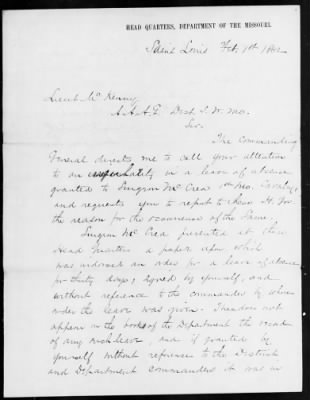 HEAD QUARTERS, DEPARTMENT OF THE MISSOURI.
Saint Louis Feb. 1862
Lieut McKenny
A.A.A.G. Dist S.W. Mo.
Sir.
The Commanding
General directs me to call your attention
to an in a leave of absence
granted to Surgeon McCrea 1st Mo. Cavalry
and requests you to report to these H. for
the reason for the occurrence of the same.
Surgeon McCrea presented at these
Head Quarters a paper upon which
was indorsed an order for a leave of absence
for thirty days, signed by yourself, and
without reference to the commander by whose
order the leave was given. There does not
appear on the books of the Department the record
of any such leave, and if granted by
yourself without reference to the District
and Department commanders it was in